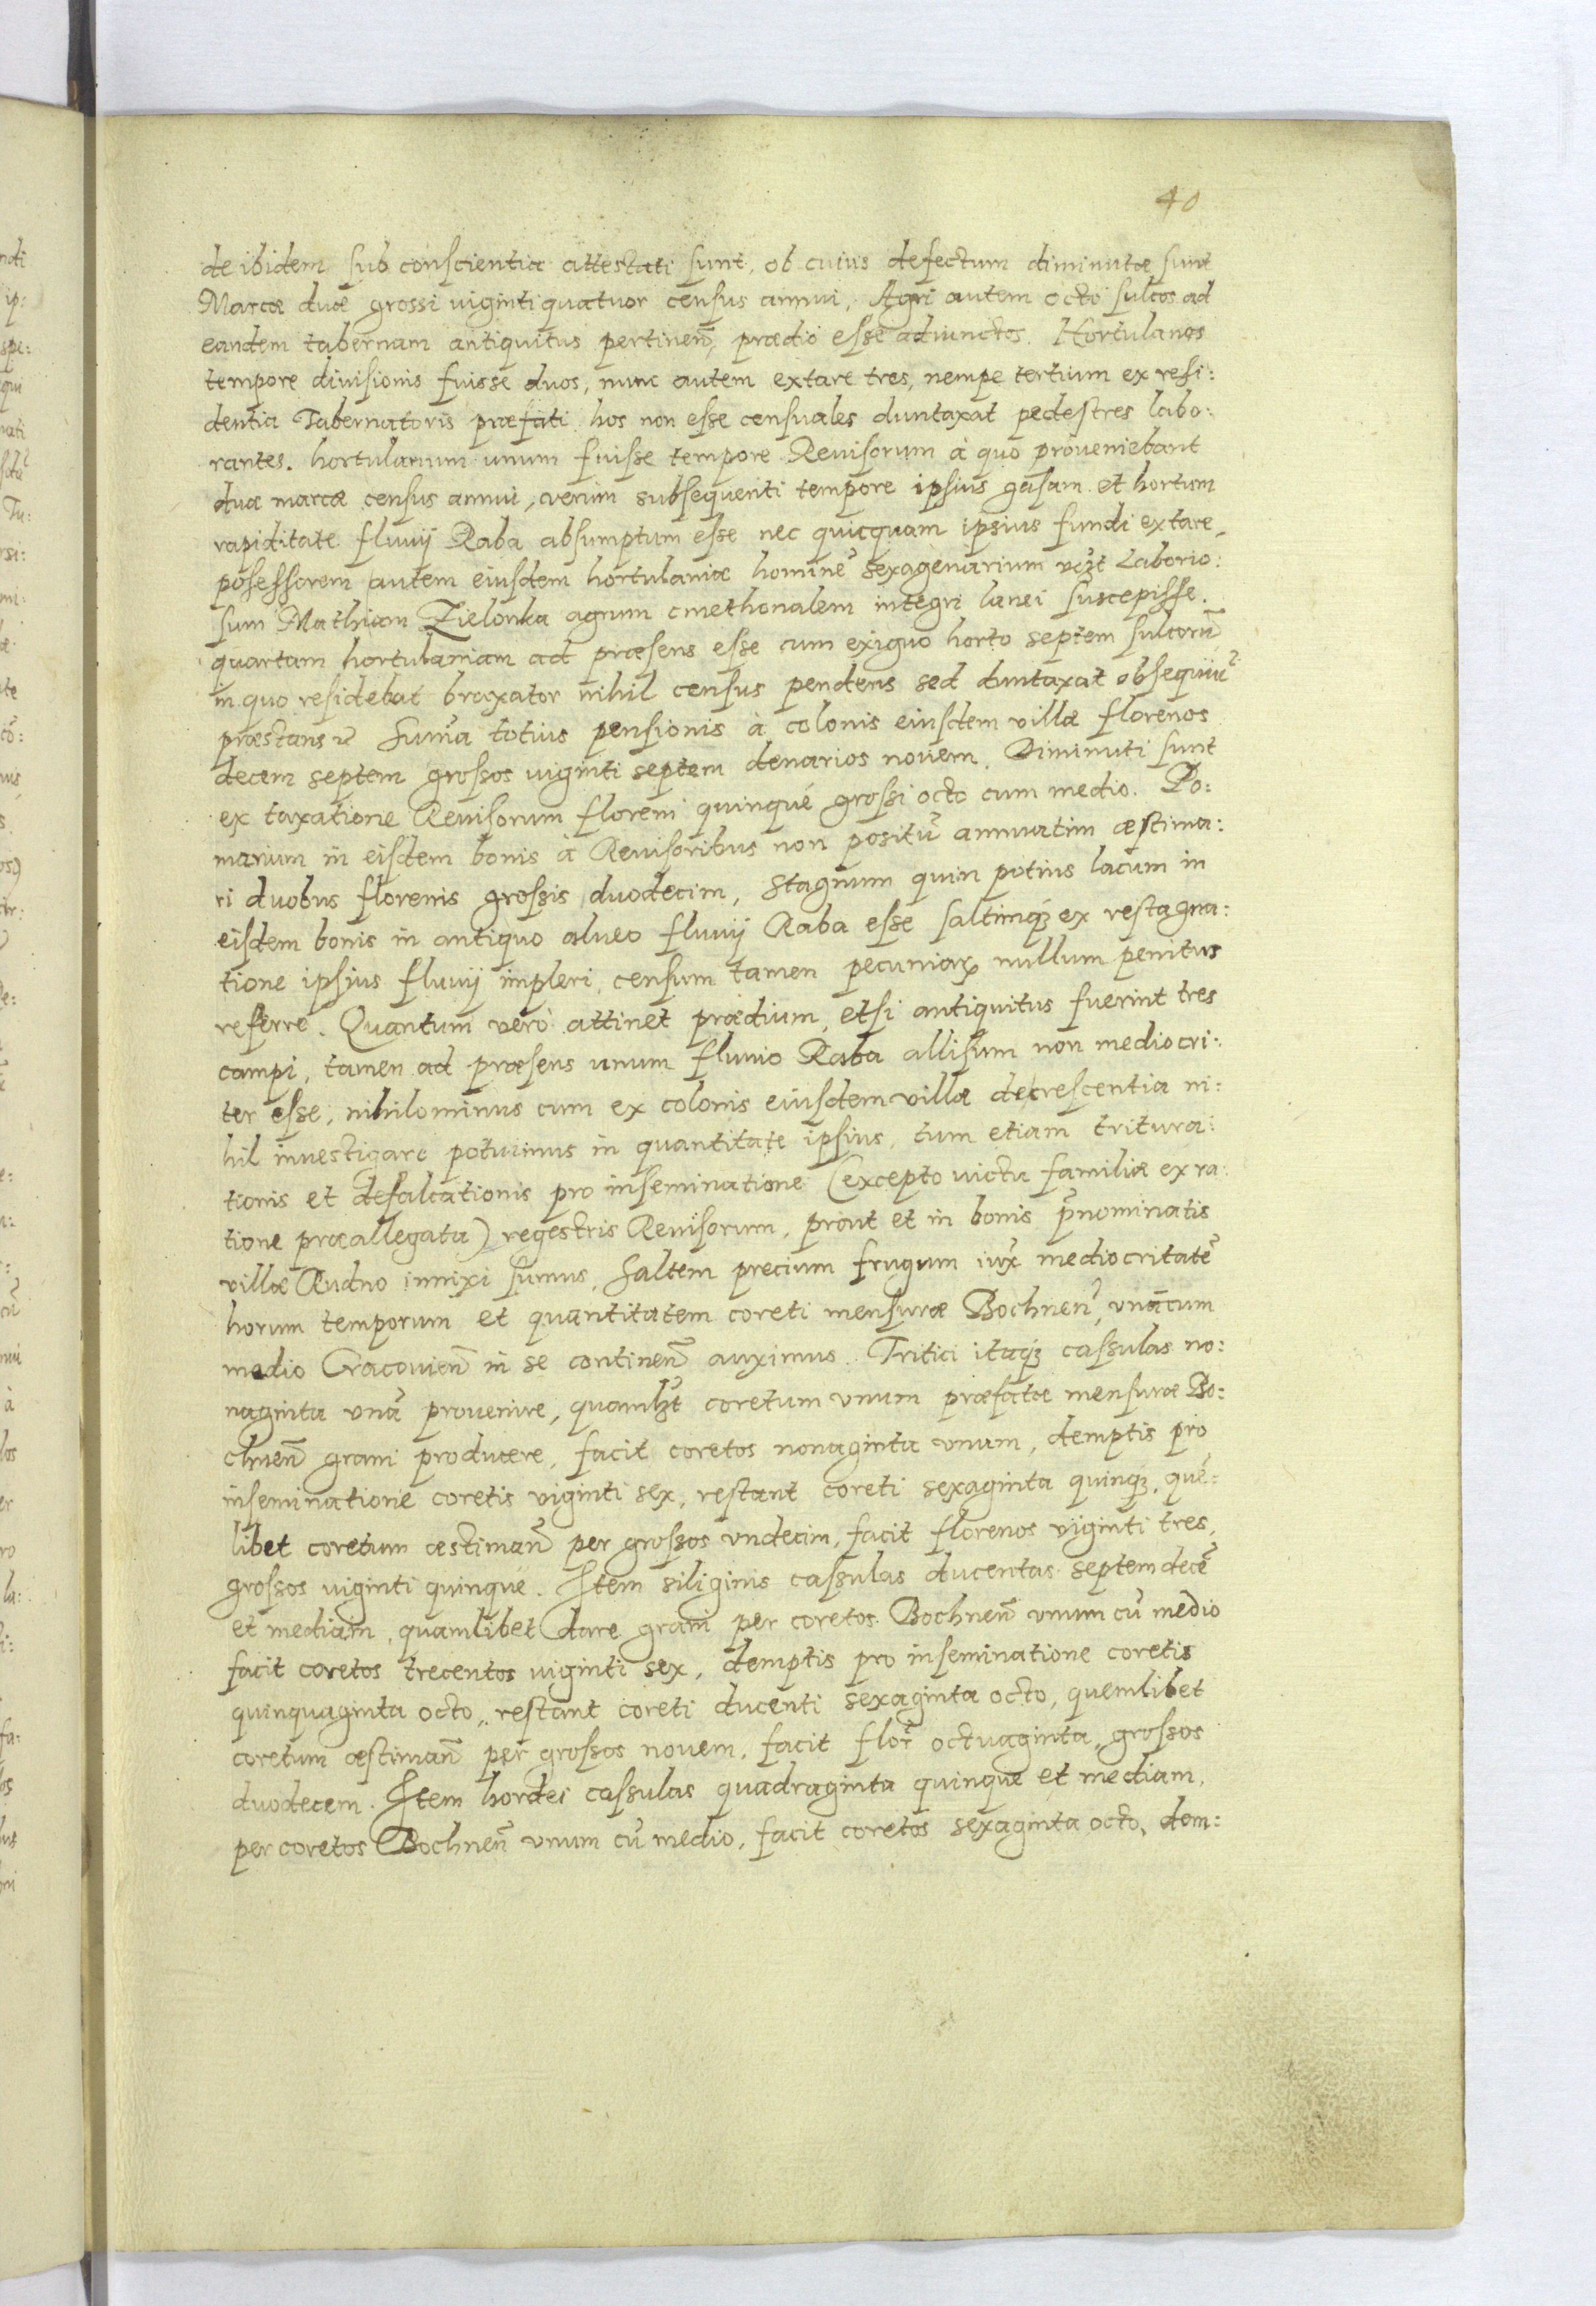 40
de ibidem sub conscientia attestati sunt, ob cuius defectum diminutæ sunt
Marcæ duæ grossi viginti quatuor census annui, Agri autem octo sulcos ad
eandem tabernam antiquitus pertineñ, prædio esse adiunctos. Hortulanos
tempore diuisionis fuisse duos, nunc autem extare tres, nempe tertium ex resi:
dentia Tabernatoris præfati hos non esse censuales duntaxat pedestres labo:
rantes. hortulanum unum fuisse tempore Reuisorum à quo proueniebant
duæ marcæ census annui, verum subsequenti tempore ipsius gasam et hortum
rapiditate fluuij Raba absumptum esse nec quicquam ipsius fundi extare,
posessorem autem eiusdem hortulaniæ hominē sexagenarium vczt Laborio:
sum Mathiam Zielonka agrum cmethonalem integri lanei suscepisse.
quartam hortulaniam ad præsens esse cum exiguo horto septem sulcorū
in quo residebat braxator nihil census pendens sed duntaxat obsequiū
præstans Sum̃a totius pensionis à colonis eiusdem villæ florenos
decem septem grossos viginti septem denarios nouem. Diminuti sunt
ex taxatione Reuisorum floreni quinque grossi octo cum medio. Po:
marium in eisdem bonis à Reuisoribus non positū annuatim æstima:
ri duobus florenis grossis duodecim, Stagnum quin potius lacum in
eisdem bonis in antiquo alueo fluuij Raba esse saltimqꝫ ex restagna:
tione ipsius fluuij impleri, censum tamen pecuniarꝝ nullum penitus
referre. Quantum verò attinet prædium, etsi antiquitus fuerint tres
campi, tamen ad præsens unum fluuio Raba allisum non mediocri:
ter esse, nihilominus cum ex colonis eiusdem villæ decrescentia ni:
hil inuestigare potuimus in quantitate ipsius, tum etiam tritura:
tionis et defalcationis pro inseminatione (excepto victu familiæ ex ra:
tione præallegata) regestris Reuisorum, prout et in bonis p̄nominatis
villæ Rudno innixi sumus, Saltem precium frugum iux̃ mediocritatē
horum temporum et quantitatem coreti mensuræ Bochneñ, vnàcum
medio Cracouieñ in se contineñ auximus. Tritici itaqꝫ cassulas no:
naginta vnā prouenire, quamlꝫt coretum vnum præfatæ mensuræ Bo:
chneñ grani producere, facit coretos nonaginta vnum, demptis pro
inseminatione coretis viginti sex, restant coreti sexaginta quinqꝫ, quē:
libet coretum æstimañ per grossos vndecim, facit florenos viginti tres,
grossos viginti quinque. Item siliginis cassulas ducentas septemdecē
et mediam, quamlibet dare grani per coretos Bochneñ vnum cū medio
facit coretos trecentos viginti sex, demptis pro inseminatione coretis
quinquaginta octo, restant coreti ducenti sexaginta octo, quemlibet
coretum æstimañ per grossos novem, facit flor̃ octuaginta, grossos
duodecem. Item hordei cassulas quadraginta quinque et mediam,
per coretos Bochneñ vnum cū medio, facit coretos sexaginta octo, dem: